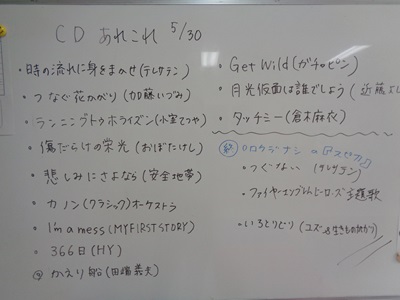 CD あれこれ 5/30
・時の流れに身をまかせ(テレサテン)
・つなぐ花かがり(加藤いづみ)
・ランニングトゥホライズン(小室てつや)
・傷だらけの栄光(おぼたけし)
・悲しみにさよなら(安全地帯)
・カノン(クラシック)オーケストラ
・I'm a mess(MY FIRST STORY)
・366日(HY)
かえり船(田端義夫)
・Get Wild(ガチャピン)
・月光仮面は誰でしょう(近藤よ
・タッチミー(倉木麻衣)
ロクデナシ の
・つぐない(テレサテン)
・ファイヤーエンブレムヒーローズ主題歌
・いろとりどり(ユズ&いきものがかり)